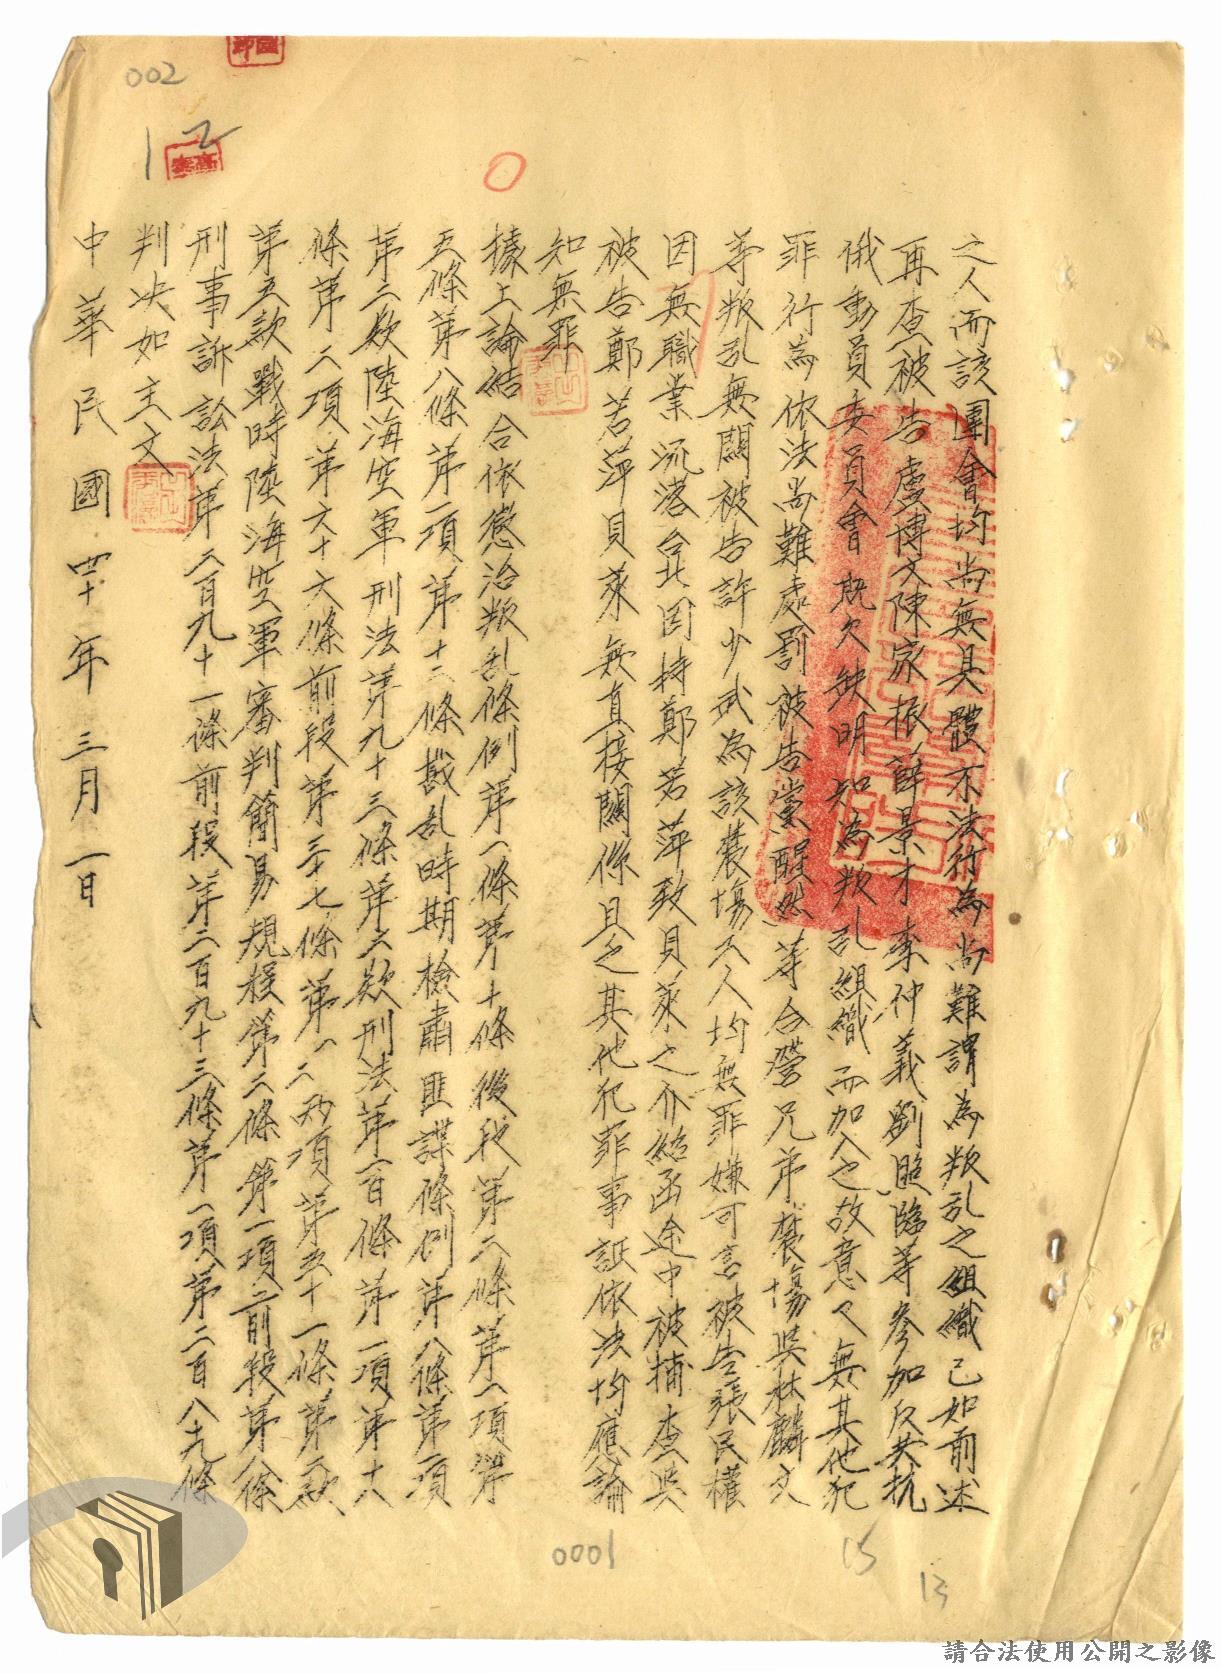 002
12
之人而該團會均尚無具體不法行為尚難謂為叛乱之組織已如前述
再查被告虞博文陳家振薛景才李仲義劉照臨等參加反共抗
俄動員委員會既欠缺明知為叛乱組織而加入之故意又無其他犯
罪行為依法尚難處罰被告黨醒然等合營兄弟農場與杜麟文
等叛乱無關被告許少武為該農場工人均無罪嫌可言被告張民權
因無職業流落台北因持鄭若萍致貝萊之介紹函途中被捕查與
被告鄭若萍貝萊無直接關係且乏其他犯罪事証依法均應諭
知無罪
據上論結合依懲治叛乱條例第一條第十條後段第二條第一項第
五條第八條第一項第十二條戡乱時期檢肅匪諜條例第八條第一項
第二款陸海空軍刑法第九十三條第六款刑法第一百條第一項第十八
條第二項第六十六條前段第三十七條第一二兩項第五十一條第二款
第五款戰時陸海空軍審判簡易規程第二條第一項之前段第八條
刑事訴訟法第二百九十一條前段第二百九十三條第一項第二百八十九條
判決如主文
中華民國四十年三月一日
0001
15
13
請合法使用公開之影像